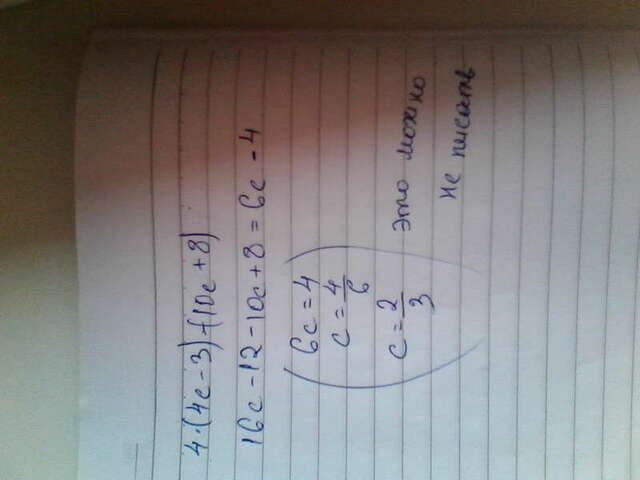 4·(4c-3)-(10c+8)
16c-12-10c+8=6c-4
6c=4
c=4/6
c=2/3
это можно
не писать